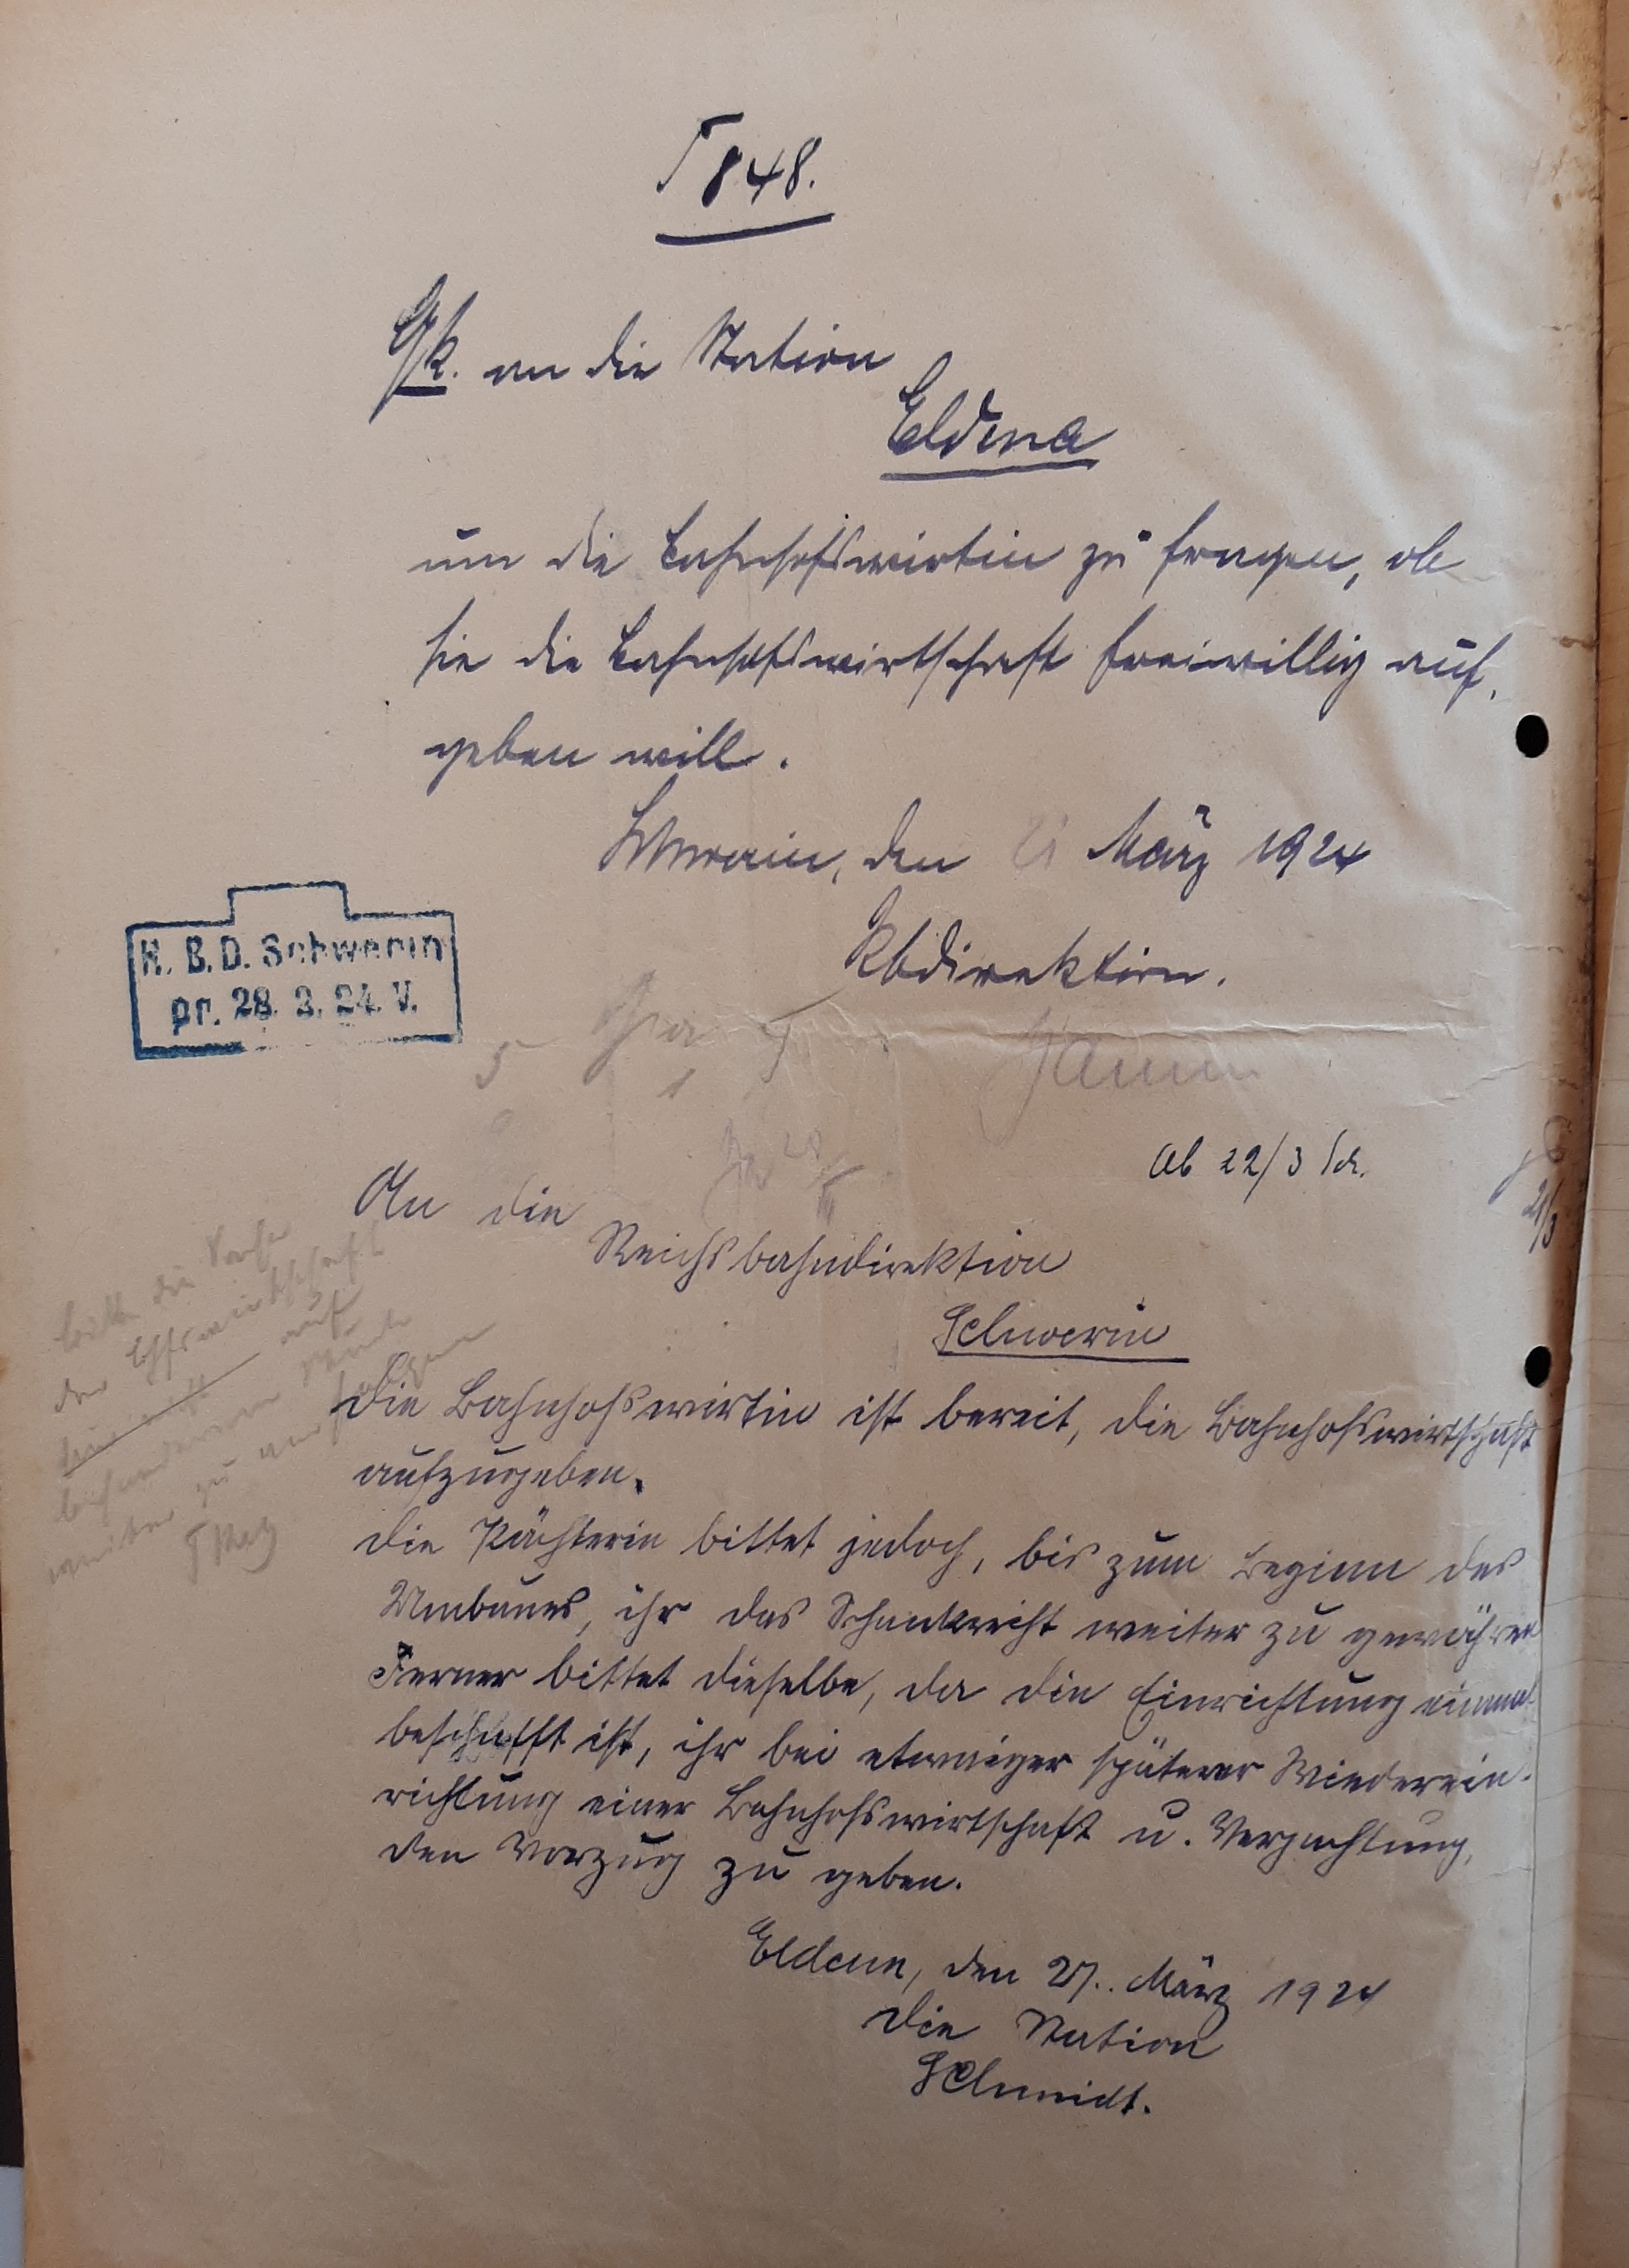 T 848.
Gk. an die Station
Eldena
um die Bahnhofswirtin zu fragen, ob
sie die Bahnhofswirtschaft freiwillig auf-
geben will.
Schwerin, den 21 März 1924
Rbdirektion.
R. B. D. Schwerin
pr. 28. 3. 24. V.
Ab 22/3 Sch.
21/3
An die
Reichsbahndirektion
Schwerin
Die Bahnhofswirtin ist bereit, die Bahnhofswirtschaft
aufzugeben.
Die Pächterin bittet jedoch, bis zum Beginn des
Umbaues, ihr das Schankrecht weiter zu gewähren
Ferner bittet dieselbe, da die Einrichtung einmal
beschafft ist, ihr bei etwaiger späterer Wiederein-
richtung einer Bahnhofswirtschaft u. Verpachtung,
den Vorzug zu geben.
Eldena, den 27. März 1924
Die Station
Schmidt.